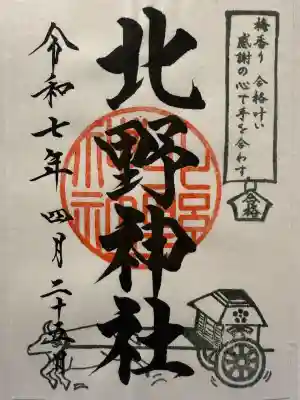 梅香り 合格叶い
感謝の心で手を合わす
合格
北野神社
令和七年四月二十五日